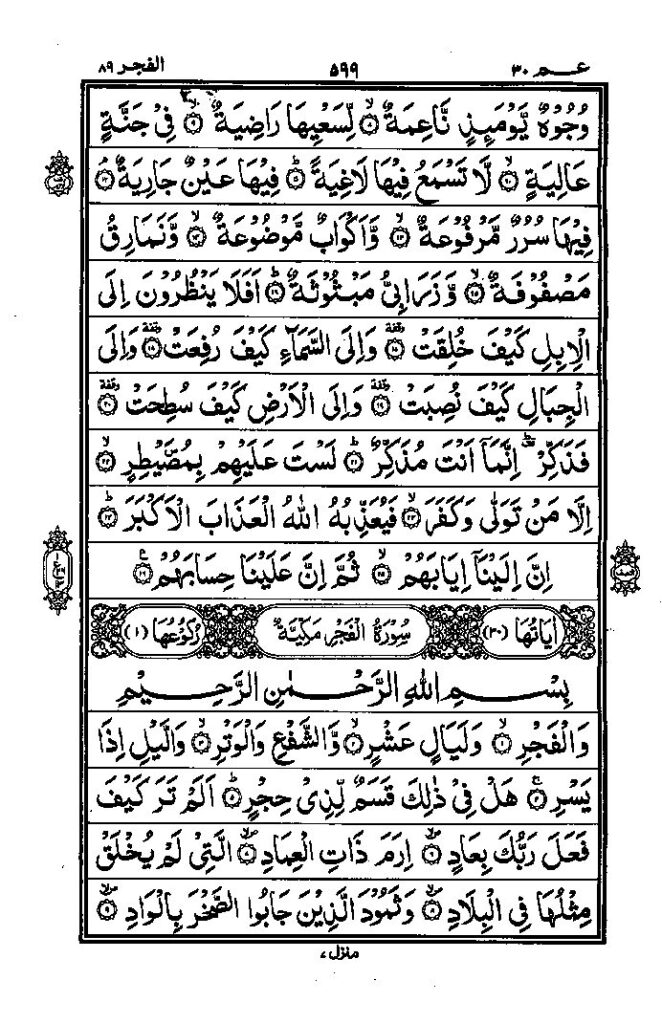 عـــم ٣٠ ٥٩٩ الفجر ٨٩
وُجُوْهٌ يَّوْمَئِذٍ نَّاعِمَةٌ ۙ﴿٨﴾ لِّسَعْيِهَا رَاضِيَةٌ ۙ﴿٩﴾ فِىْ جَنَّةٍ
عَالِيَةٍ ۙ﴿١٠﴾ لَّا تَسْمَعُ فِيْهَا لَاغِيَةً ؕ﴿١١﴾ فِيْهَا عَيْنٌ جَارِيَةٌ ۘ﴿١٢﴾
فِيْهَا سُرُرٌ مَّرْفُوْعَةٌ ۙ﴿١٣﴾ وَّاَكْوَابٌ مَّوْضُوْعَةٌ ۙ﴿١٤﴾ وَّنَمَارِقُ
مَصْفُوْفَةٌ ۙ﴿١٥﴾ وَّزَرَابِىُّ مَبْثُوْثَةٌ ؕ﴿١٦﴾ اَفَلَا يَنْظُرُوْنَ اِلَى
الْاِبِلِ كَيْفَ خُلِقَتْ ﴿١٧﴾ وقفة وَاِلَى السَّمَآءِ كَيْفَ رُفِعَتْ ﴿١٨﴾ وقفة وَاِلَى
الْجِبَالِ كَيْفَ نُصِبَتْ ﴿١٩﴾ وقفة وَاِلَى الْاَرْضِ كَيْفَ سُطِحَتْ ﴿٢٠﴾ وقفة
فَذَكِّرْ ۛ اِنَّمَاۤ اَنْتَ مُذَكِّرٌ ؕ﴿٢١﴾ لَسْتَ عَلَيْهِمْ بِمُصَۜيْطِرٍ ۙ﴿٢٢﴾
اِلَّا مَنْ تَوَلّٰى وَكَفَرَ ۙ﴿٢٣﴾ فَيُعَذِّبُهُ اللّٰهُ الْعَذَابَ الْاَكْبَرَ ؕ﴿٢٤﴾
اِنَّ اِلَيْنَاۤ اِيَابَهُمْ ۙ﴿٢٥﴾ ثُمَّ اِنَّ عَلَيْنَا حِسَابَهُمْ ﴿٢٦﴾
اٰيَاتُهَا (٣٠) سُوْرَةُ الْفَجْرِ مَكِّيَّةٌ رُكُوْعُهَا (١)
بِسْـــمِ اللّٰهِ الرَّحْـــمٰنِ الرَّحِيْـــمِ
وَالْفَجْرِ ۙ﴿١﴾ وَلَيَالٍ عَشْرٍ ۙ﴿٢﴾ وَّالشَّفْعِ وَالْوَتْرِ ۙ﴿٣﴾ وَالَّيْلِ اِذَا
يَسْرِ ۚ﴿٤﴾ هَلْ فِىْ ذٰلِكَ قَسَمٌ لِّذِىْ حِجْرٍ ؕ﴿٥﴾ اَلَمْ تَرَ كَيْفَ
فَعَلَ رَبُّكَ بِعَادٍ ۪ۙ﴿٦﴾ اِرَمَ ذَاتِ الْعِمَادِ ۪ۙ﴿٧﴾ الَّتِىْ لَمْ يُخْلَقْ
مِثْلُهَا فِى الْبِلَادِ ۪ۙ﴿٨﴾ وَثَمُوْدَ الَّذِيْنَ جَابُوا الصَّخْرَ بِالْوَادِ ۪ۙ﴿٩﴾
منزل ٧